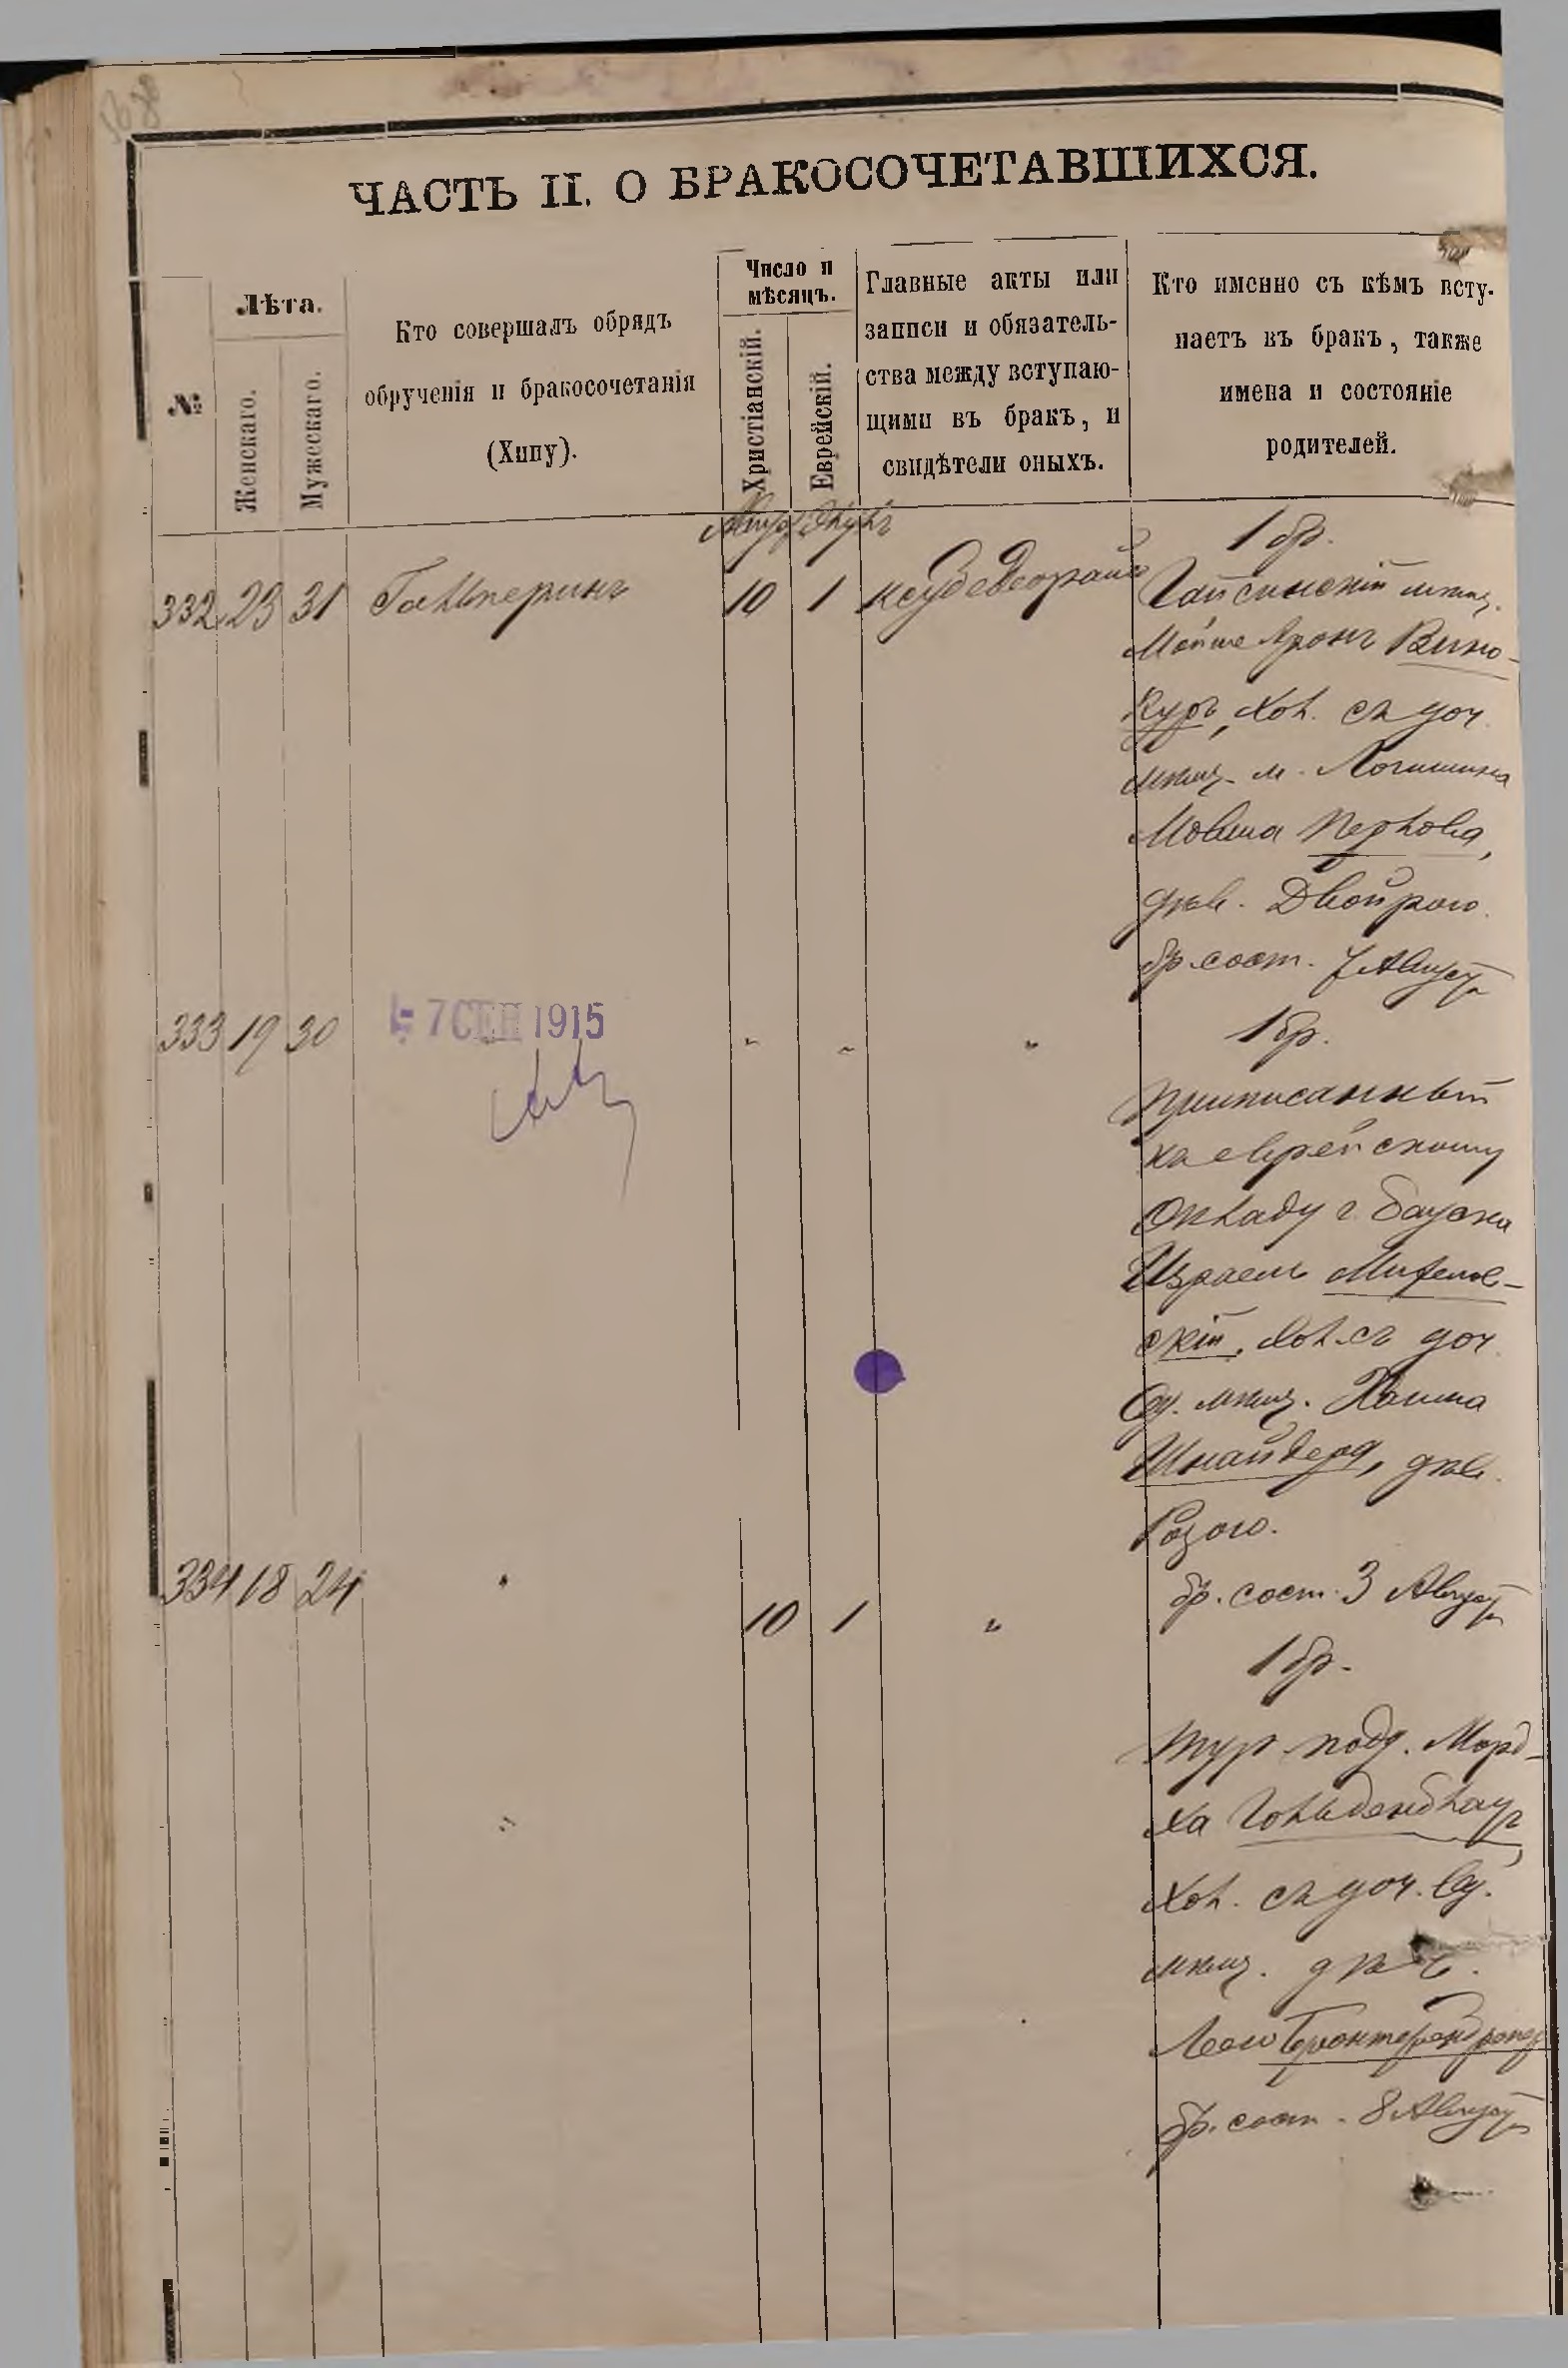 ЧАСТЬ II. О БРАКОСОЧЕТАВШИХСЯ.
№
Лѣта.
Женскаго.
Мужескаго.
Кто совершалъ обрядъ
обрученія и бракосочетанія
(Хипу).
Число и
мѣсяцъ.
Христіанскій.
Еврейскій.
Главные акты или
записи и обязатель-
ства между вступаю-
щими въ бракъ, и
свидѣтели оныхъ.
Кто именно съ кѣмъ всту-
паетъ въ бракъ, также
имена и состояніе
родителей.
332 23 31 Гальперинъ 10 1
1 бр.
Гайсинскій мѣщ.
Мойше Аронъ Вино-
куръ, хол. съ доч.
мѣщ. м. Логишина
Мовша Перлова,
дѣв. Двойрою.
бр. сост. 7 Август
333 19 30 " " "
7 СЕН 1915
1 бр.
Приписанный
къ еврейскому
окладу г. Бауска
Израель Михелов-
скій, хол. съ доч.
Од. мѣщ. Хаима
Шнайдера, дѣв.
Розою.
бр. сост. 3 Август
334 18 24 " 10 1 "
1 бр.
Тур. подд. Морд-
ха Гольденблат,
хол. съ доч. Од.
мѣщ. дѣв.
Леею
бр. сост. 8 Август